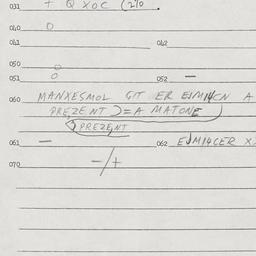 031 + Q XOC (210
040 O
041 042
050 O
051 O 052 —
060 MANXESMOL GIT ER EJM14CN A
PREZENT) = A MATONE
PREZENT
061 — 062 EJM14CER X
070 -/+